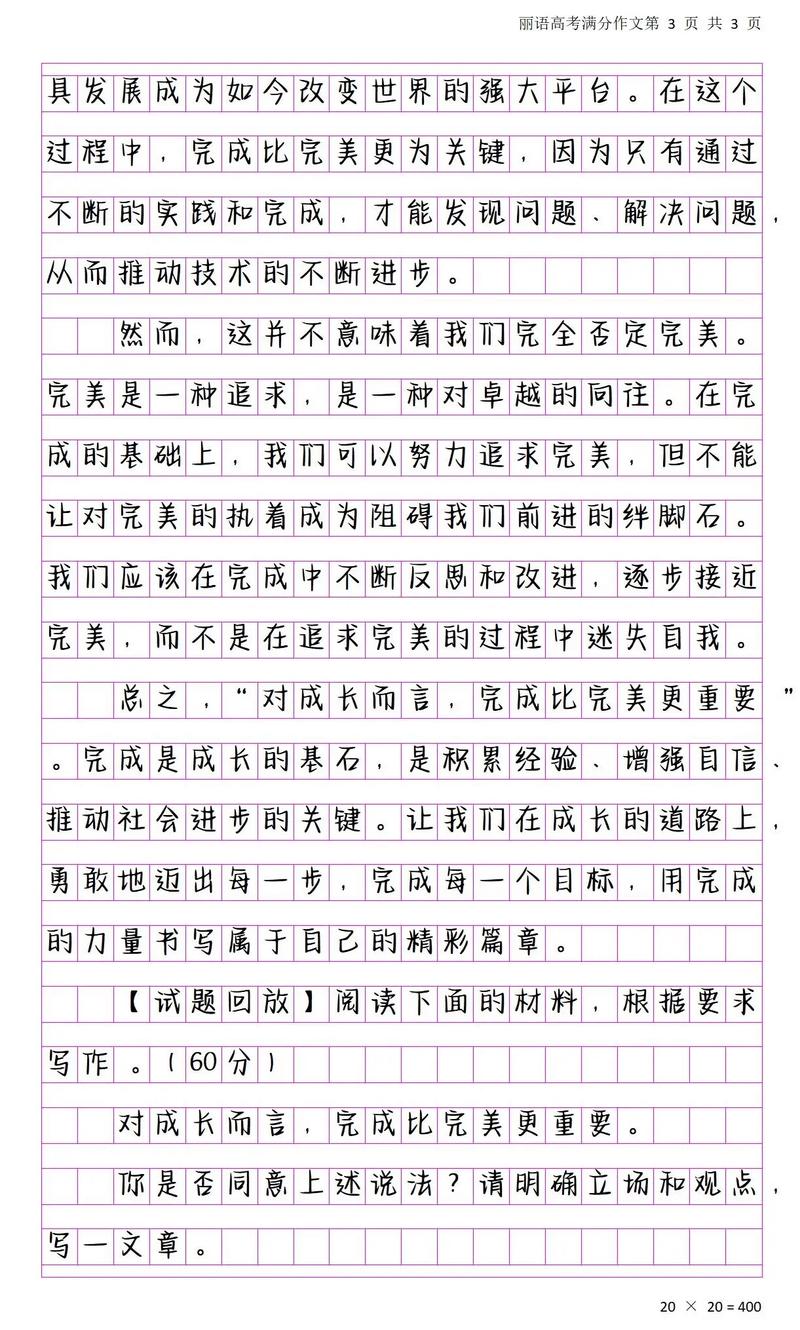 丽语高考满分作文第 3 页 共 3 页
具发展成为如今改变世界的强大平台。在这个
过程中，完成比完美更为关键，因为只有通过
不断的实践和完成，才能发现问题、解决问题，
从而推动技术的不断进步。
然而，这并不意味着我们完全否定完美。
完美是一种追求，是一种对卓越的向往。在完
成的基础上，我们可以努力追求完美，但不能
让对完美的执着成为阻碍我们前进的绊脚石。
我们应该在完成中不断反思和改进，逐步接近
完美，而不是在追求完美的过程中迷失自我。
总之，“对成长而言，完成比完美更重要”
。完成是成长的基石，是积累经验、增强自信、
推动社会进步的关键。让我们在成长的道路上，
勇敢地迈出每一步，完成每一个目标，用完成
的力量书写属于自己的精彩篇章。
【试题回放】阅读下面的材料，根据要求
写作。（60分）
对成长而言，完成比完美更重要。
你是否同意上述说法？请明确立场和观点，
写一文章。
20 × 20 = 400